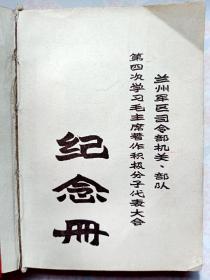 兰州军区司令部机关、部队
第四次学习毛主席著作积极分子代表大会
纪念册